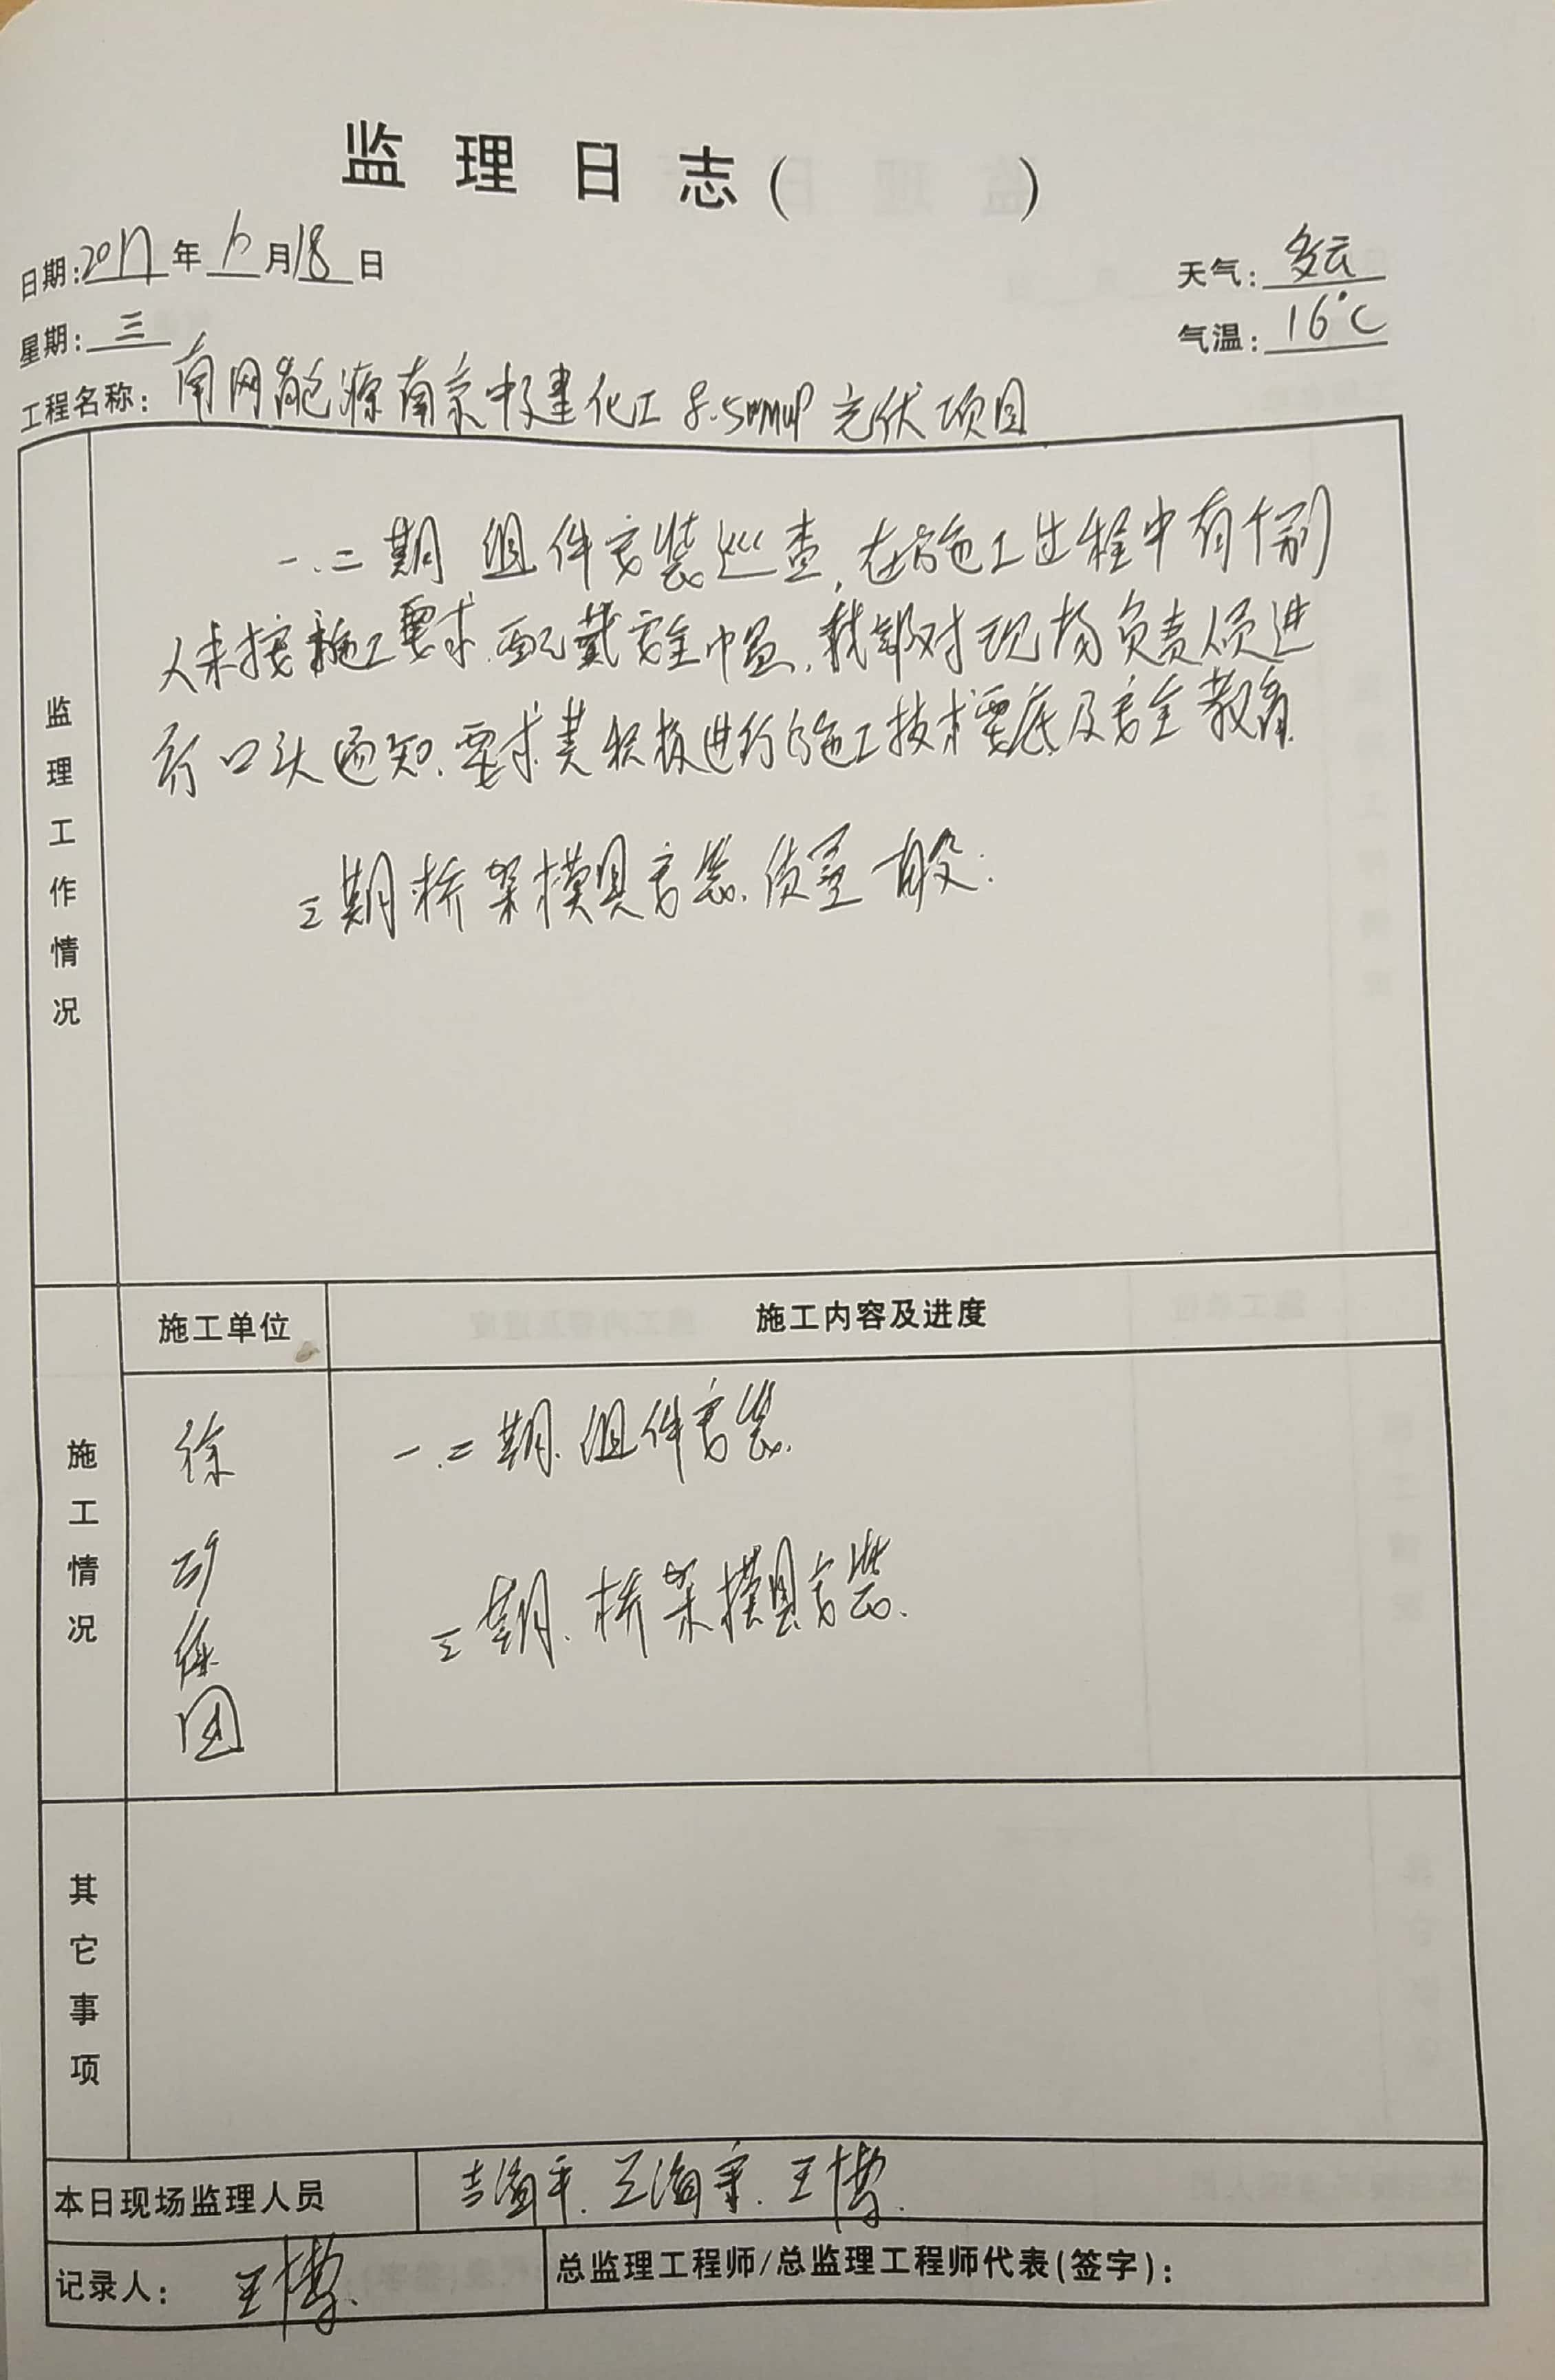 监理日志( )
日期:2017年10月18日
天气:多云
星期:三
气温:16℃
工程名称:南网能源南京中建化工8.5MWP光伏项目
监理工作情况
一.二期组件安装巡查,在施工过程中有个别
人未按施工要求.配戴安全帽.我部对现场负责人员进
行口头通知.要求其积极进行施工技术交底及安全教育.
三期桥架模具安装.质量一般.
施工情况
施工单位
施工内容及进度
徐
一.二期.组件安装.
三期.桥架模具安装.
团
其它事项
本日现场监理人员
吉海平.王海宁.王博.
记录人:王博.
总监理工程师/总监理工程师代表(签字):